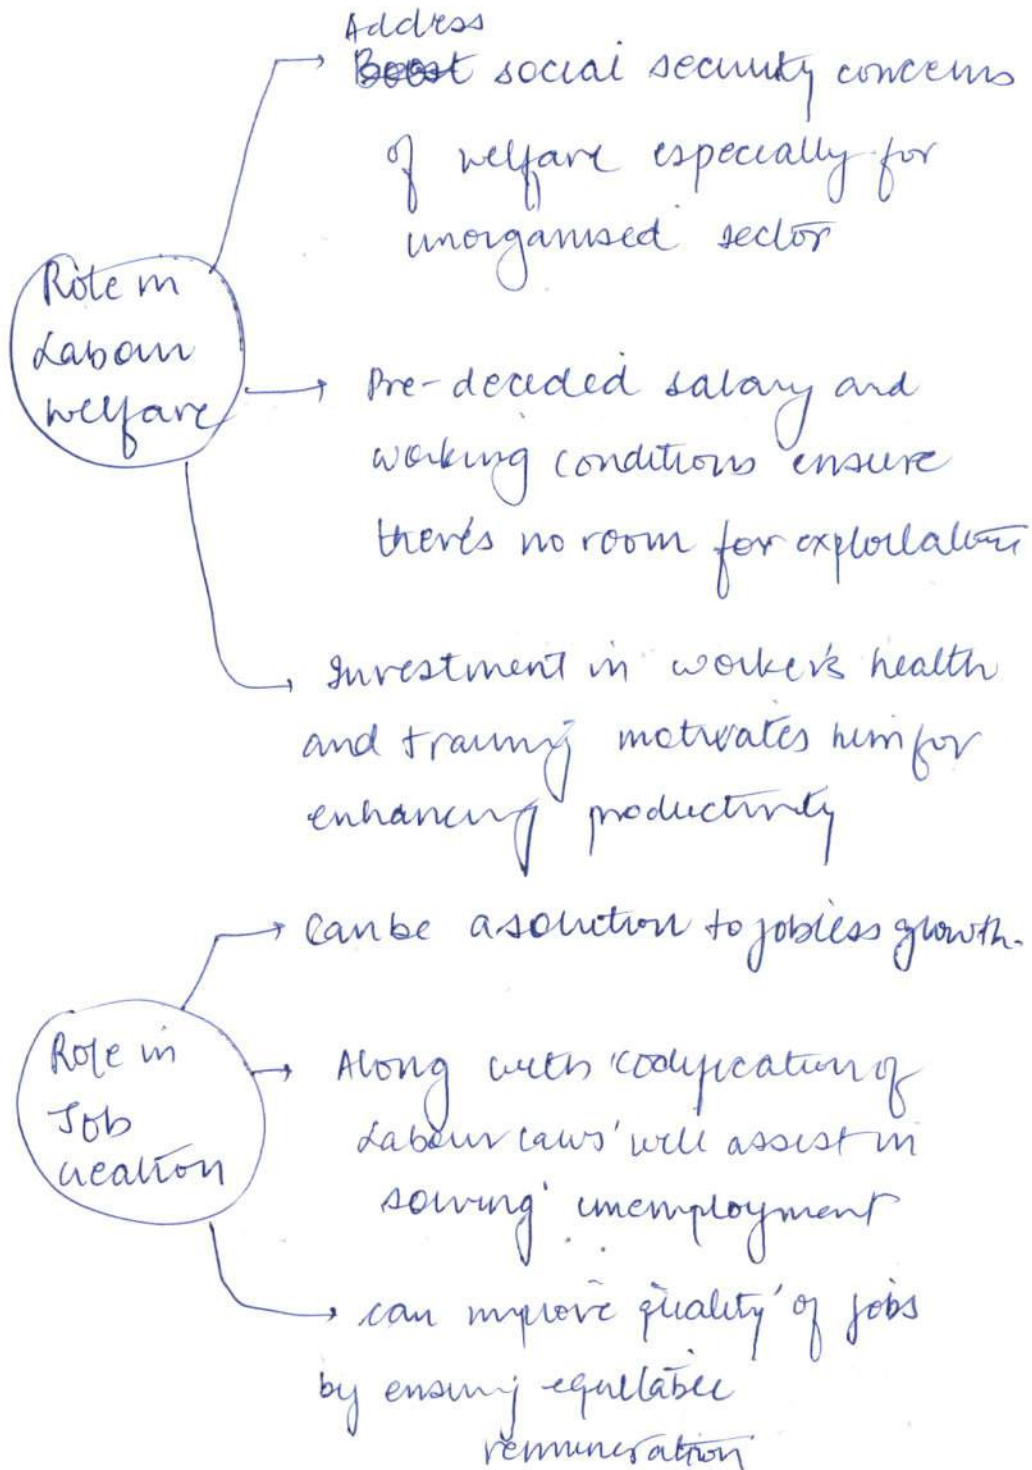 Address
Boost social security concerns
of welfare especially for
unorganised sector
Role in
Labour
welfare
Pre-decided salary and
working conditions ensure
there's no room for exploitation
Investment in worker's health
and training motivates him for
enhancing productivity
Can be a solution to jobless growth.
Role in
Job
creation
Along with 'codification of
Labour laws' will assist in
solving unemployment
can improve quality of jobs
by ensuring equitable
remuneration